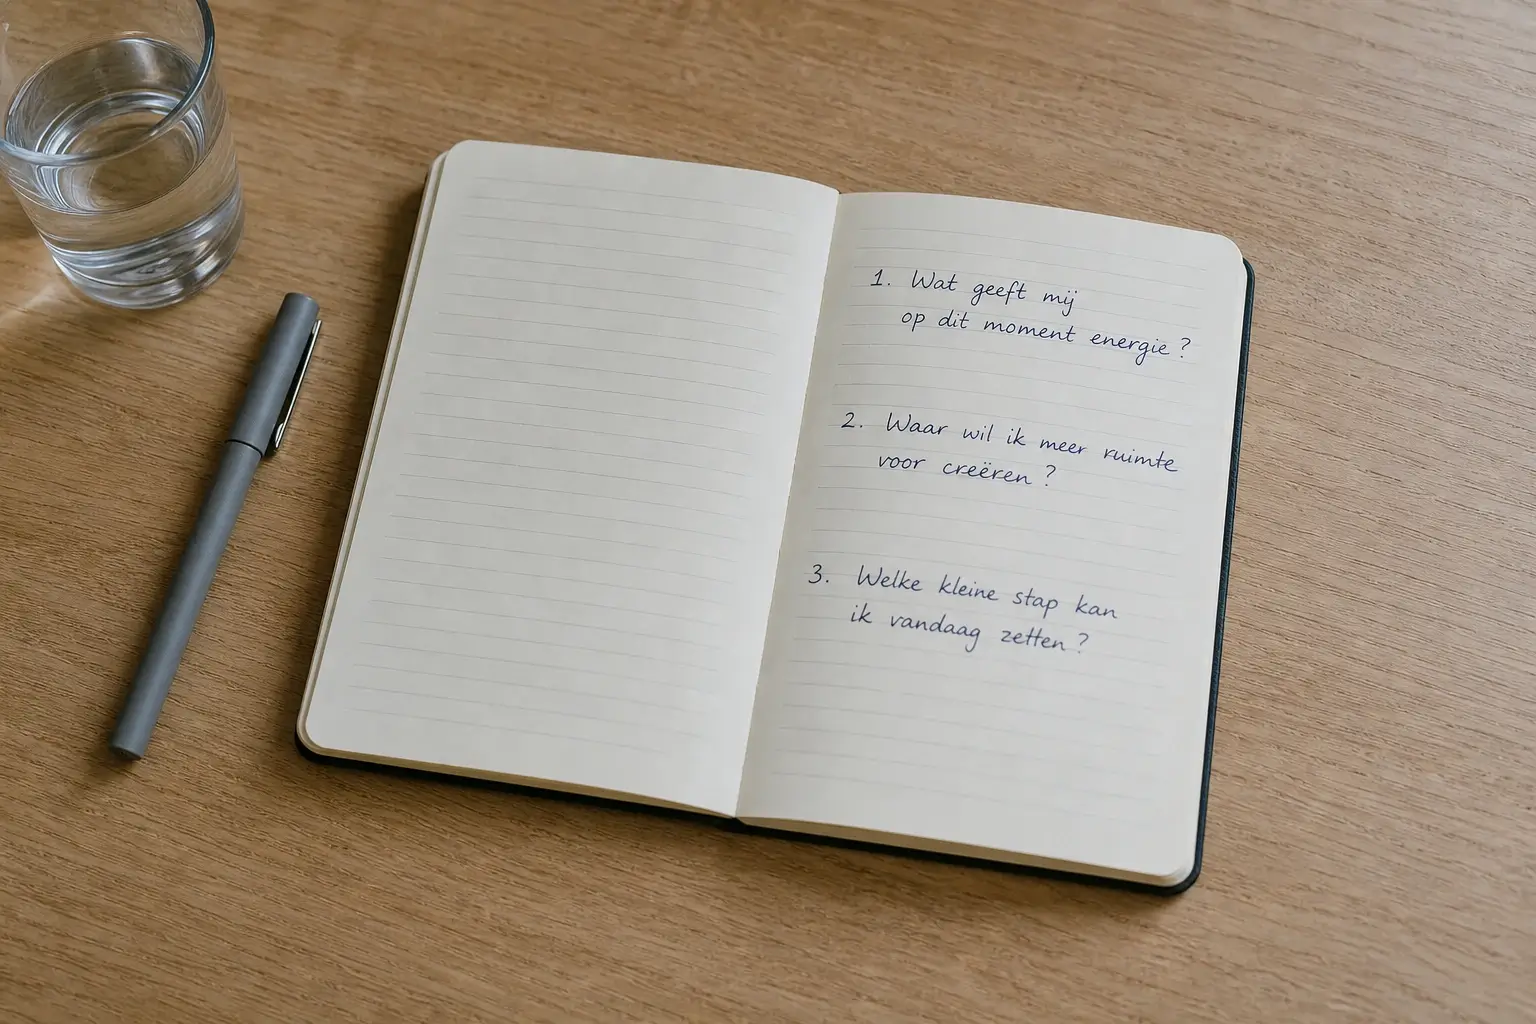 1. Wat geeft mij
op dit moment energie?
2. Waar wil ik meer ruimte
voor creëren?
3. Welke kleine stap kan
ik vandaag zetten?